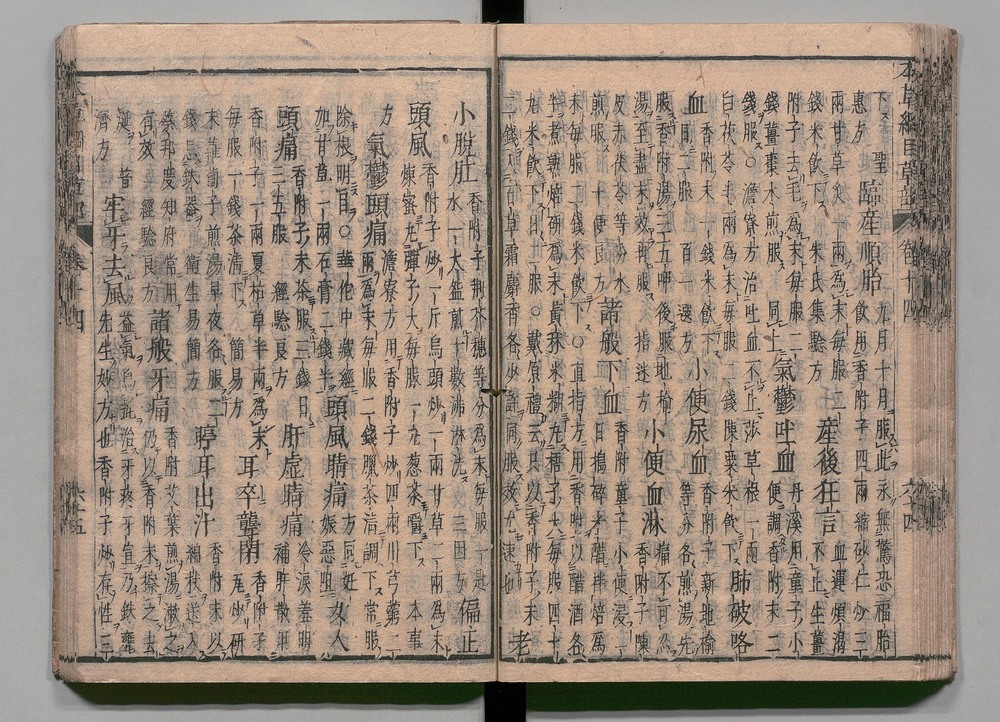 本草綱目草部　卷十四　六十四
下 聖惠方 臨産順胎 九月十月服此永無驚恐福胎
飲用香附子四兩縮砂仁炒三
兩甘草炙一兩爲末每服二
錢米飲下 朱氏集驗方 産後狂言 血運煩渴不止生薑
附子去毛爲末每服二
錢薑棗水煎服 同上 氣鬱吐血 丹溪用童子小便調香附末二
錢服 澹寮方治吐血不止莎草根一兩
白茯苓半兩爲末每服二錢陳粟米飲下 肺破咯
血 香附末一錢米飲下
日二服 百一選方 小便尿血 香附子新地榆等分各煎湯先
服香附湯三五呷後服地榆
湯至盡未效再服 指迷方 小便血淋 痛不可忍香附子陳
皮赤茯苓等分水
煎服 十便良方 諸般下血 香附童子小便浸一日搗碎米醋拌焙爲
末每服二錢米飲下 ○直指方用香附以醋酒各
半煮熟焙研爲末黃秫米糊丸梧子大每服四十
丸米飲下日再服 ○戴原禮云只以香附子末
二錢入百草霜麝香各少許同服效尤速也 老
小脫肛 香附子荆芥穗等分爲末每服一匙
水一大盌煎十數沸淋洗 三因方 偏正
頭風 香附子炒一斤烏頭炒一兩甘草二兩爲末
煉蜜丸彈子大每服一丸葱茶嚼下 本事
方 氣鬱頭痛 澹寮方用香附子炒四兩川芎藭二
兩爲末每服二錢臘茶清調下常服
除根明目 ○華佗中藏經
加甘草一兩石膏二錢半 頭風睛痛 方同上 女人
頭痛 香附子末茶服三錢日
三五服 經驗良方 肝虛睛痛 冷淚羞明補肝散用
香附子一兩夏枯草半兩爲末
每服一錢茶清下 簡易方 耳卒聾閉 香附子瓦炒研
末蘿蔔子煎湯早夜各服二
錢忌鐵器 衛生易簡方 聤耳出汁 香附末以綿杖送入
蔡邦度知府常用
有效 經驗良方 諸般牙痛 香附艾葉煎湯漱之仍以香附末擦之去
涎 普濟方 牢牙去風 益氣烏髭治牙疼牙宣乃鐵甕先生妙方也香附子炒存性三